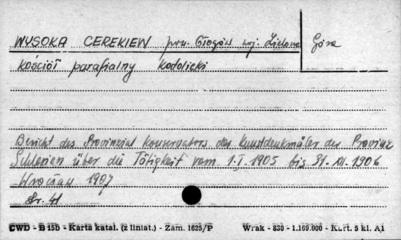 WYSOKA CEREKIEW pow. Głogów woj. Zielona Góra
Kościół parafialny katolicki
Bericht des Provinzial Konservators der Kunstdenkmäler der Provinz
Schlesien über die Tätigkeit vom 1.I.1905 bis 31.XII.1906
Wrocław 1907
str. 41
CWD - B 15b - Karta katal. (z liniat.) - Zam. 1625/P Wrak - 830 - 1.160.000 - Kart. 5 kl. A1